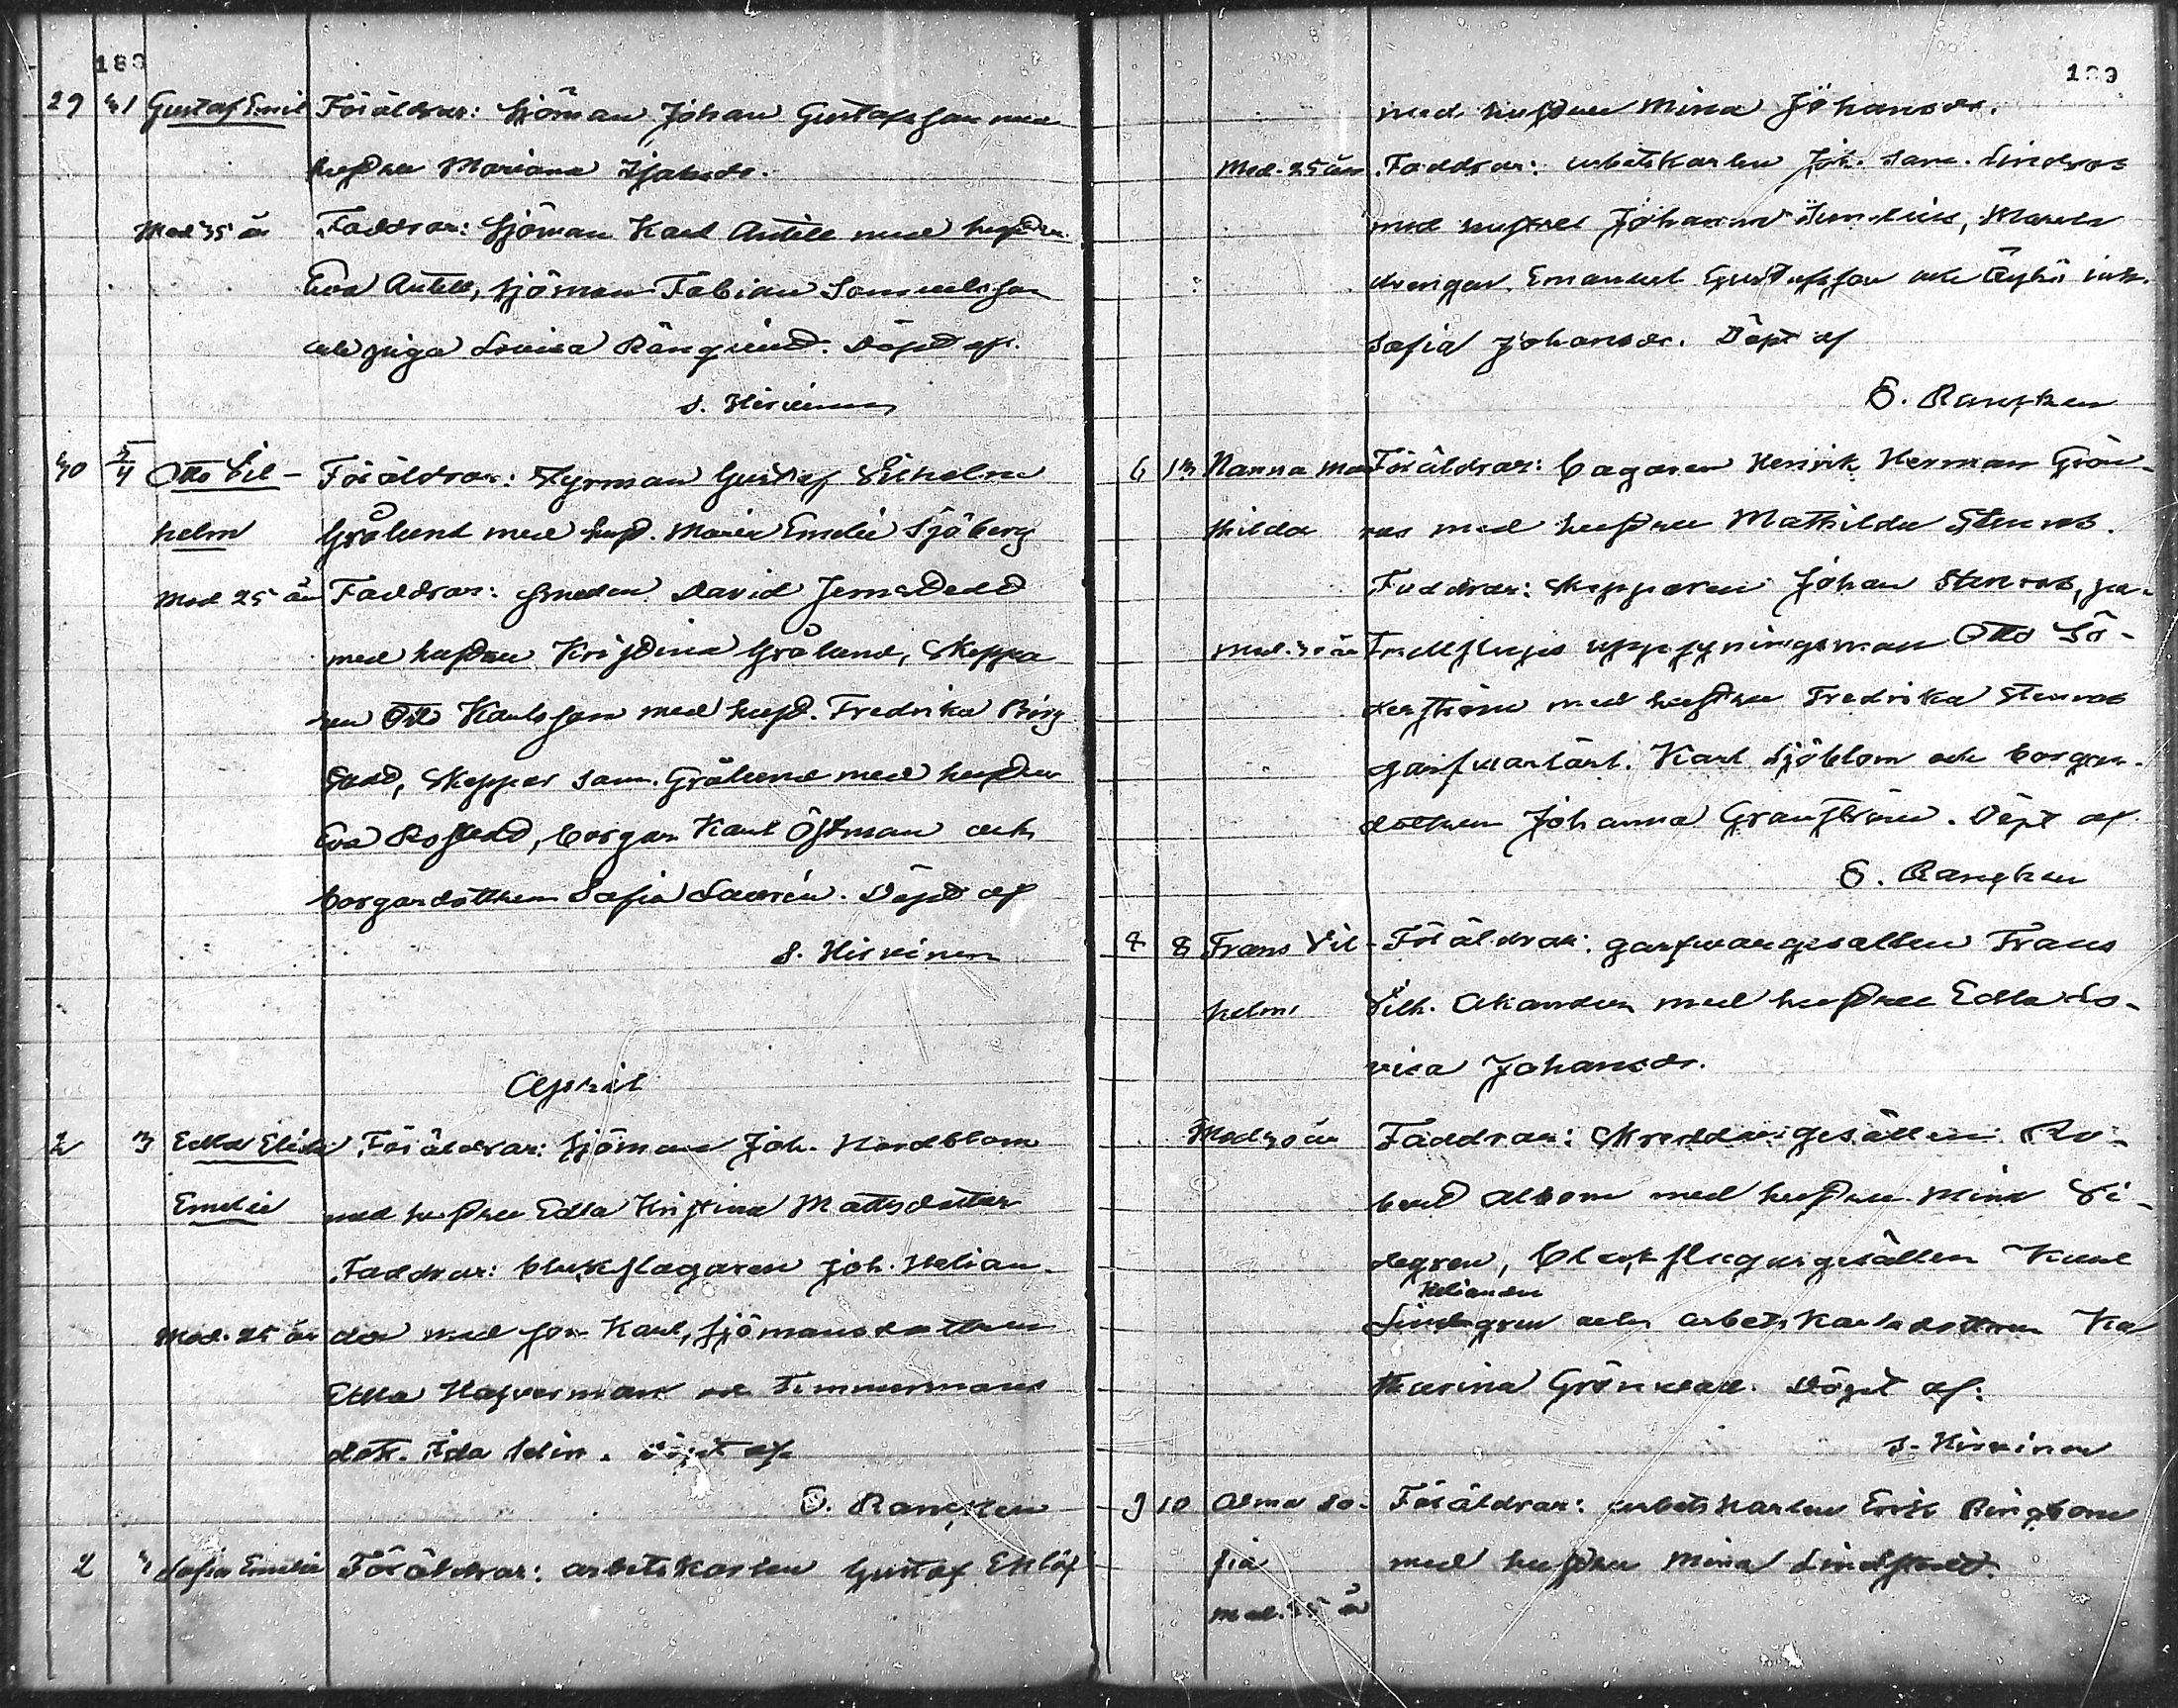 29 31 Gustaf Emil Föräldrar: Sjöman Johan Gustafsson med
hustru Mariana Isaksdr.
Mod 35 år Faddrar: Sjöman Karl Antell med hustru
Eva Antell, sjöman Fabian Samuelsson
och piga Lovisa Rönqvist. Döpt af
S. Hirvinen
30 3/4 Otto Vil-
Föräldrar: Fyrman Gustaf Vilhelm
helm Grålund med hust. Maria Emelie Sjöberg
Mod 25 år Faddrar: smeden David Jernstedt
med hustru Kristina Grålund, Skeppa
ren Otto Karlsson med hust. Fredrika
Skeppar Sam. Grålund med hustru
Eva borgar. Karl Östman och
borgardottern Sofia Laurén. Döpt af
S. Hirvinen
April
2 3 Edla Elida Föräldrar: Sjöman Joh. Nordblom
Emelie med hustru Edla Kristina Mattsdotter
Faddrar: bleckslagaren Joh. Helian-
Mod. 25 år der med son Karl, sjömansdottern
Edla Hafverman och Timmermans
dotr. Ida Selin. Döpt af
O. Rancken
2 3 Sofia Emelie Föräldrar: arbetskarlen Gustaf Eklöf
med hustru Mina Johansdr.
Mod. 25 år Faddrar: arbetskarlen Joh. Sam. Lindroos
med hustru Johanna
drengar Emanuel Gustafsson och
Sofia Johansdr. Döpt af
O. Rancken
6 13 Nanna Ma Föräldrar: bagaren Henrik Herman Grön-
thilda roos med hustru Mathilda Stenroos.
Faddrar: skepparen Johan Stenroos,
Mod. 30 år uppsyningsman Otto Sö-
derström med hustru Fredrika Stenroos
garfvarlärl. Karl Sjöblom och borgar-
dottern Johanna Granström. Döpt af
O. Rancken
8 8 Frans Vil- Föräldrar: garfvaregesällen Frans
helm Vilh. Akander med hustru Edla Lo-
visa Johansdr.
Mod 30 år Faddrar: Skreddaregesällen Ro-
bert Albom med hustru Mina Vi-
degren, Bleckslagargesällen Karl
Heliander
Lindgren och arbetskarlsdottern Ka
tharina Grönvall. Döpt af:
S. Hirvinen
9 10 Alma So- Föräldrar: arbetskarlen Erik Ringbom
fia med hustru Mina Lindstedt.
Mod. 25 år